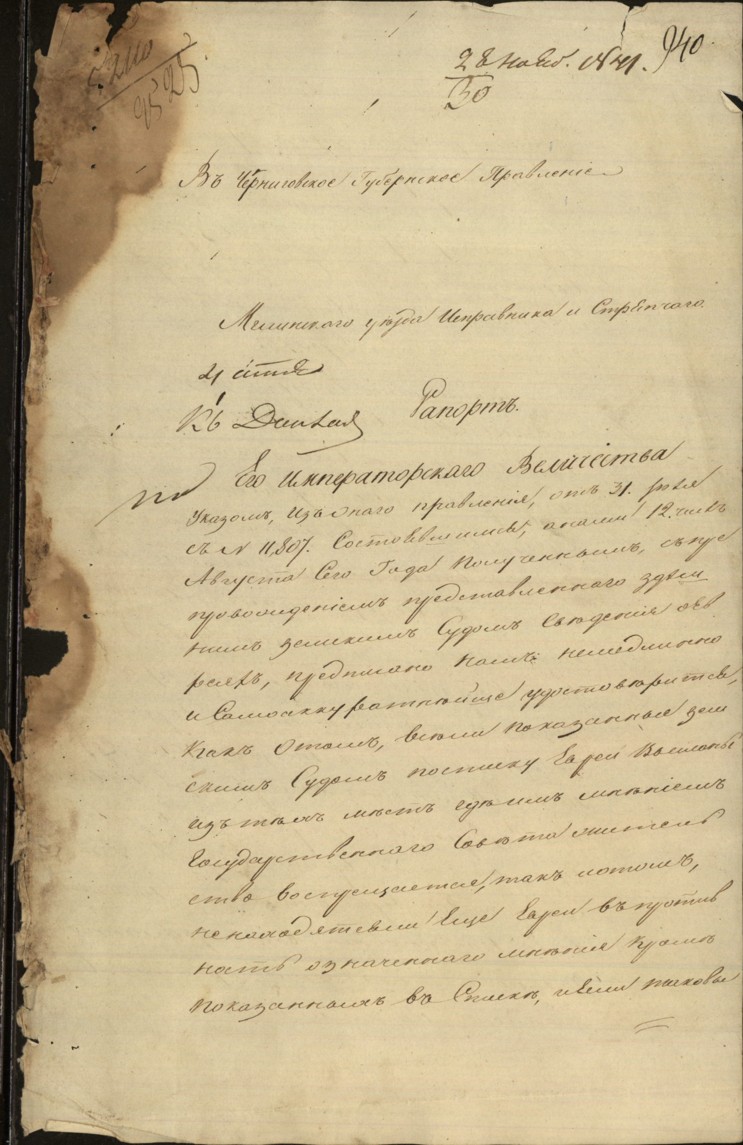 940
28 Нояб. 1841.
30
2525
Въ Черниговское Губернское Правленіе
Мглинского уезда Исправника и Стряпчего
Рапортъ.
Къ Делам
Его Императорскаго Величества
Указомъ, Изъ онаго правленія, отъ 31. Іюля
съ № 11,807. Состоявшимся, а нами 12. числъ
Августа Сего Года Полученнымъ, съ пре
провожденіемъ представленного здеш
нимъ земскимъ Судомъ Сведенія о Ев
реяхъ, предписано намъ немедленно
и Самоаккуратнейше удостовериться,
Какъ Отомъ, всели показанные зем
скимъ Судомъ постику Евреи Высланы
изъ техъ местъ где имъ мненіемъ
Государственного Совета житель
ство воспрещается, такъ и отомъ,
ненаходятсяли Еще Евреи въ против
ность означенного мненія Кроме
Показанныхъ въ Списке, и Если таковые